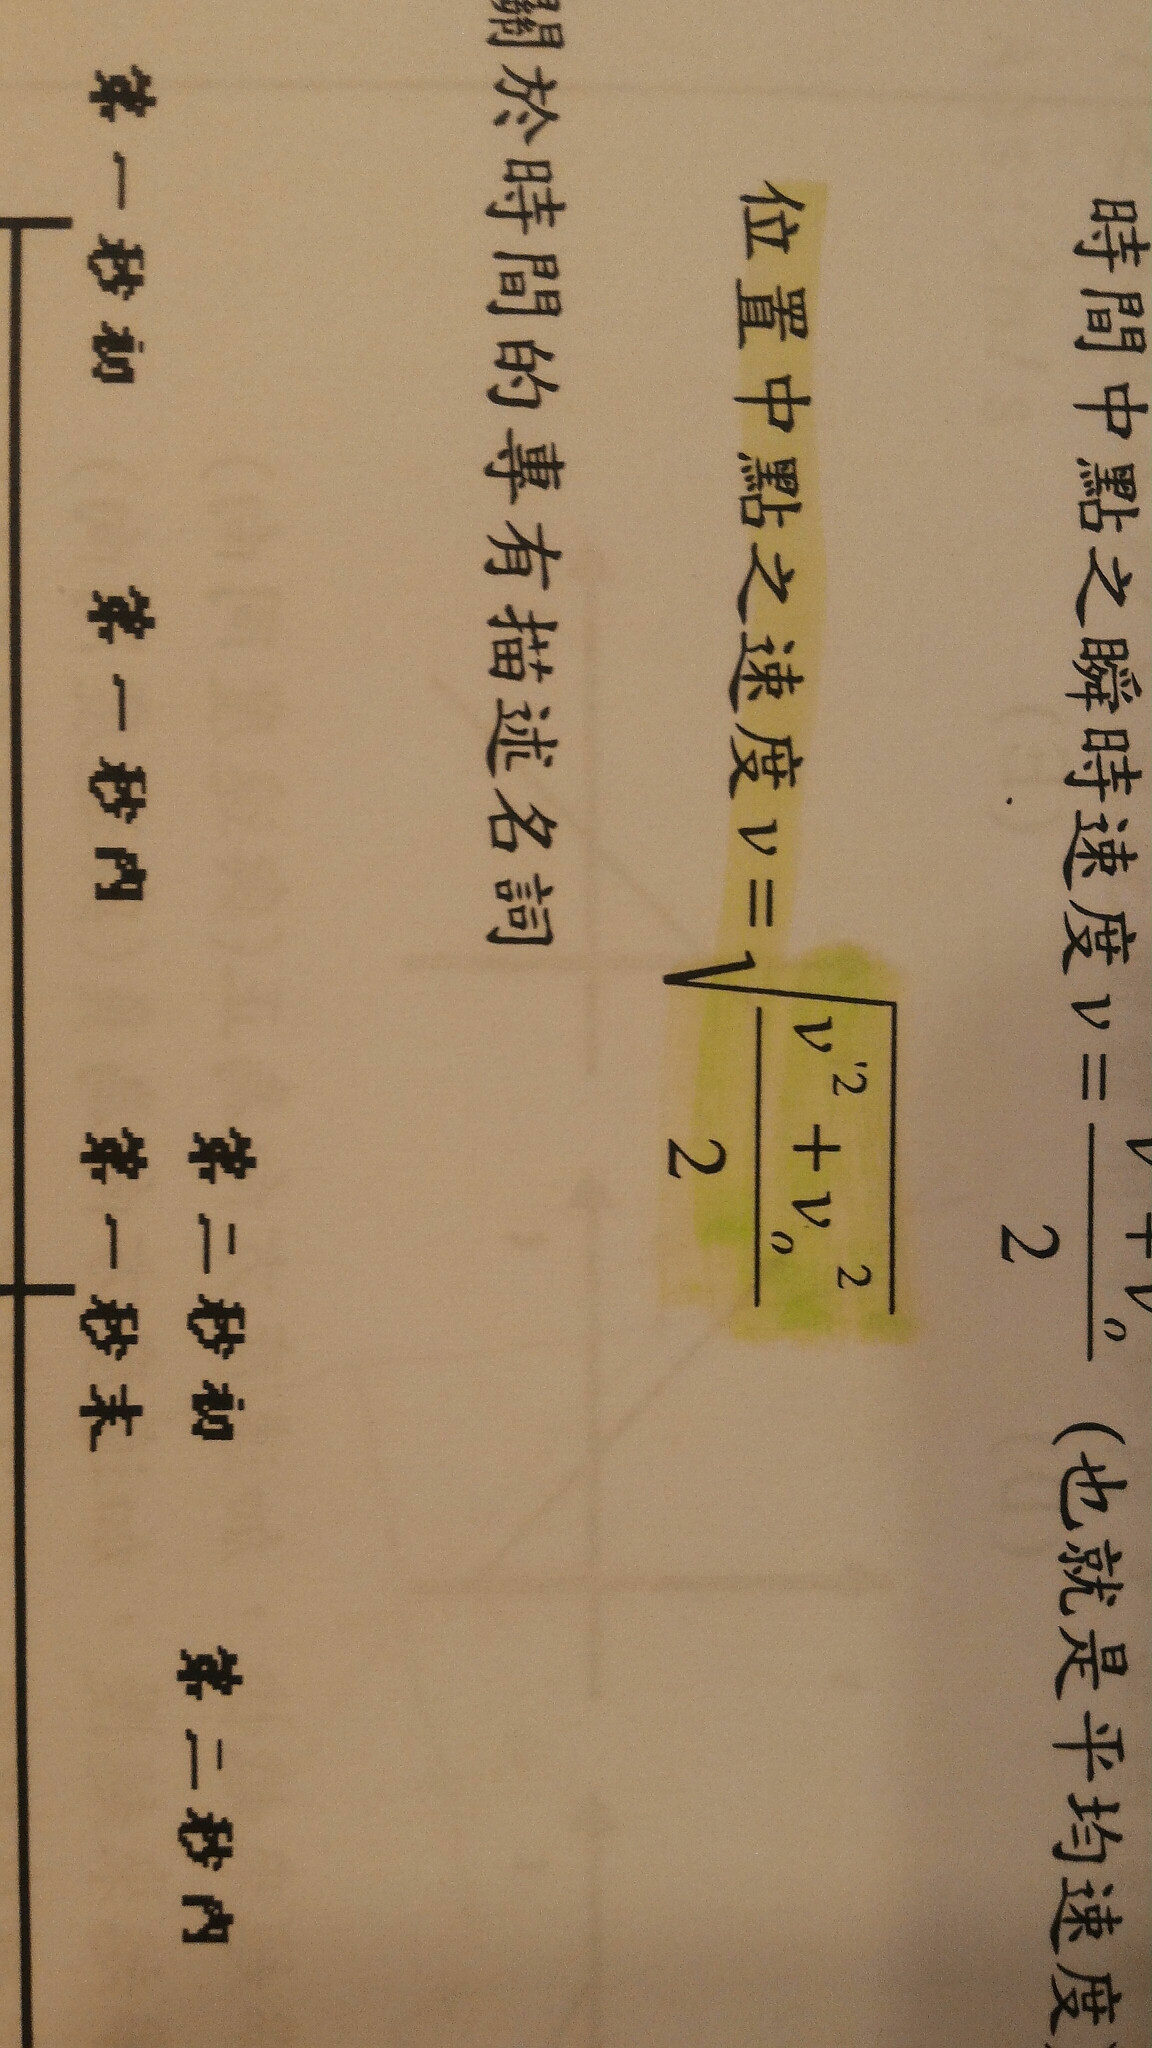 時間中點之瞬時速度 v = (v + v₀)/2 (也就是平均速度)
位置中點之速度 v = √((v'² + v₀²)/2)
關於時間的專有描述名詞
第二秒初 第二秒內
第一秒初 第一秒內 第一秒末